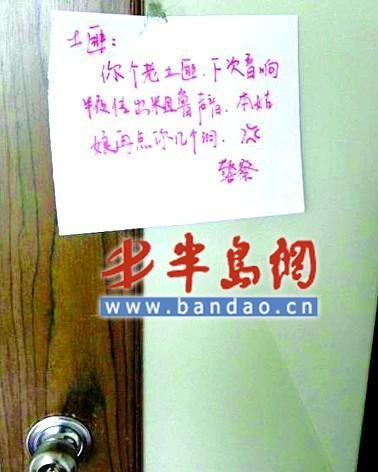 土匪：
你个老土匪，下次音响
半夜传出粗鲁声音，本姑
娘再点你几个洞。
警察
半岛網
www.bandao.cn